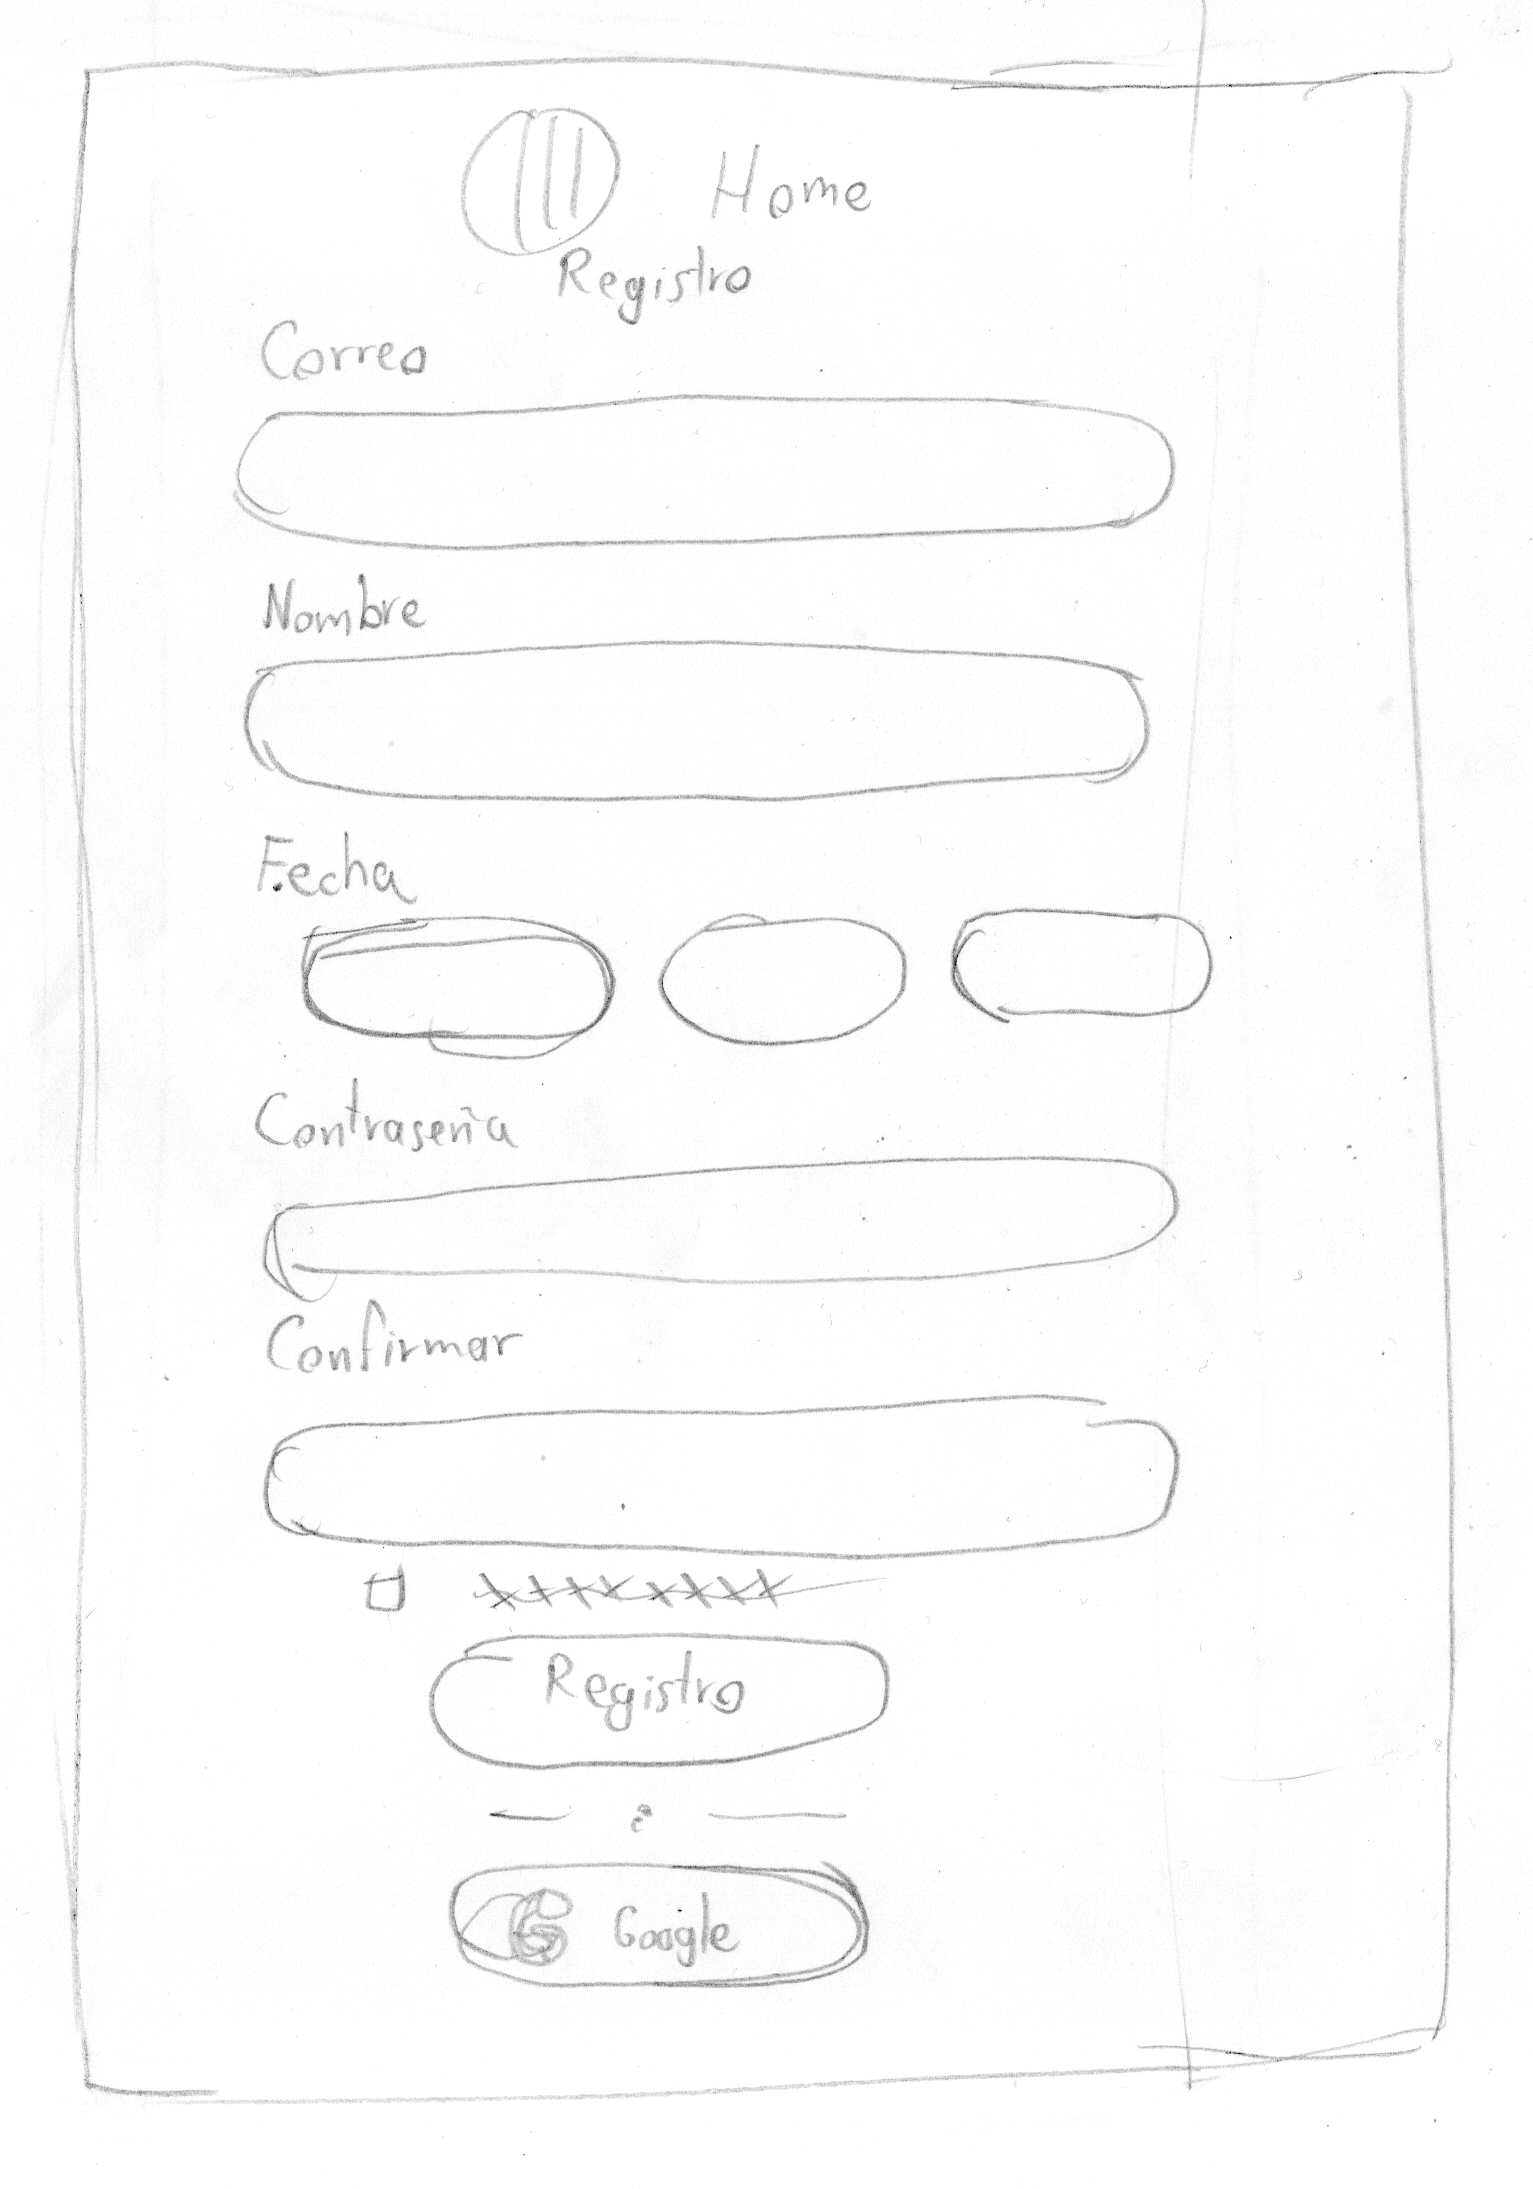 Home
Registro
Correo
Nombre
Fecha
Contraseña
Confirmar
Registro
Google